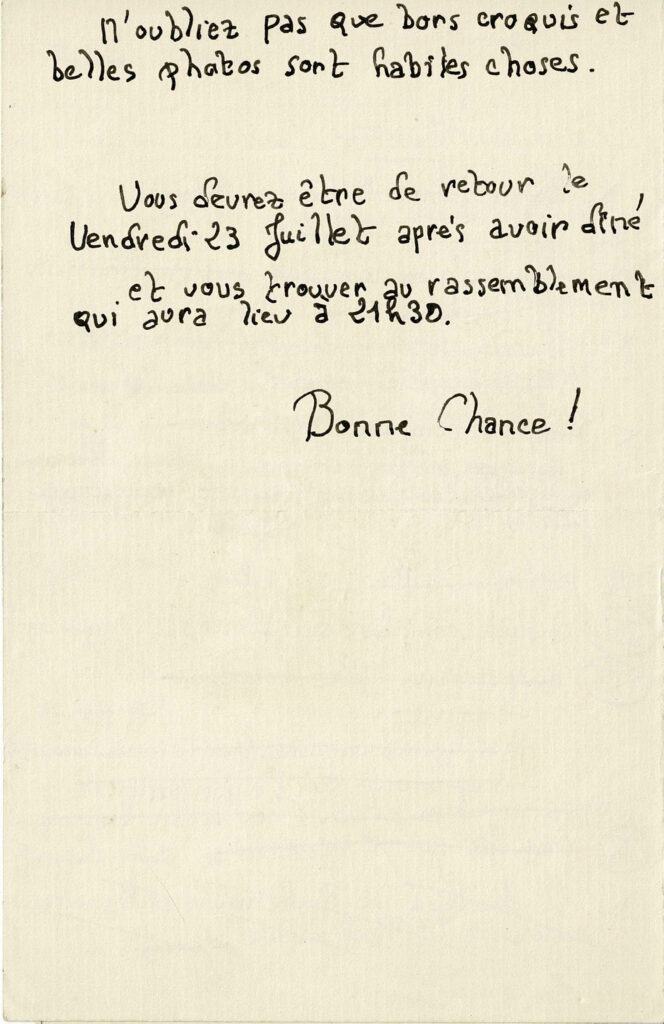 N'oubliez pas que bons croquis et
belles photos sont habiles choses.
Vous devrez être de retour le
Vendredi 23 Juillet après avoir dîné
et vous trouver au rassemblement
qui aura lieu à 21h30.
Bonne Chance !